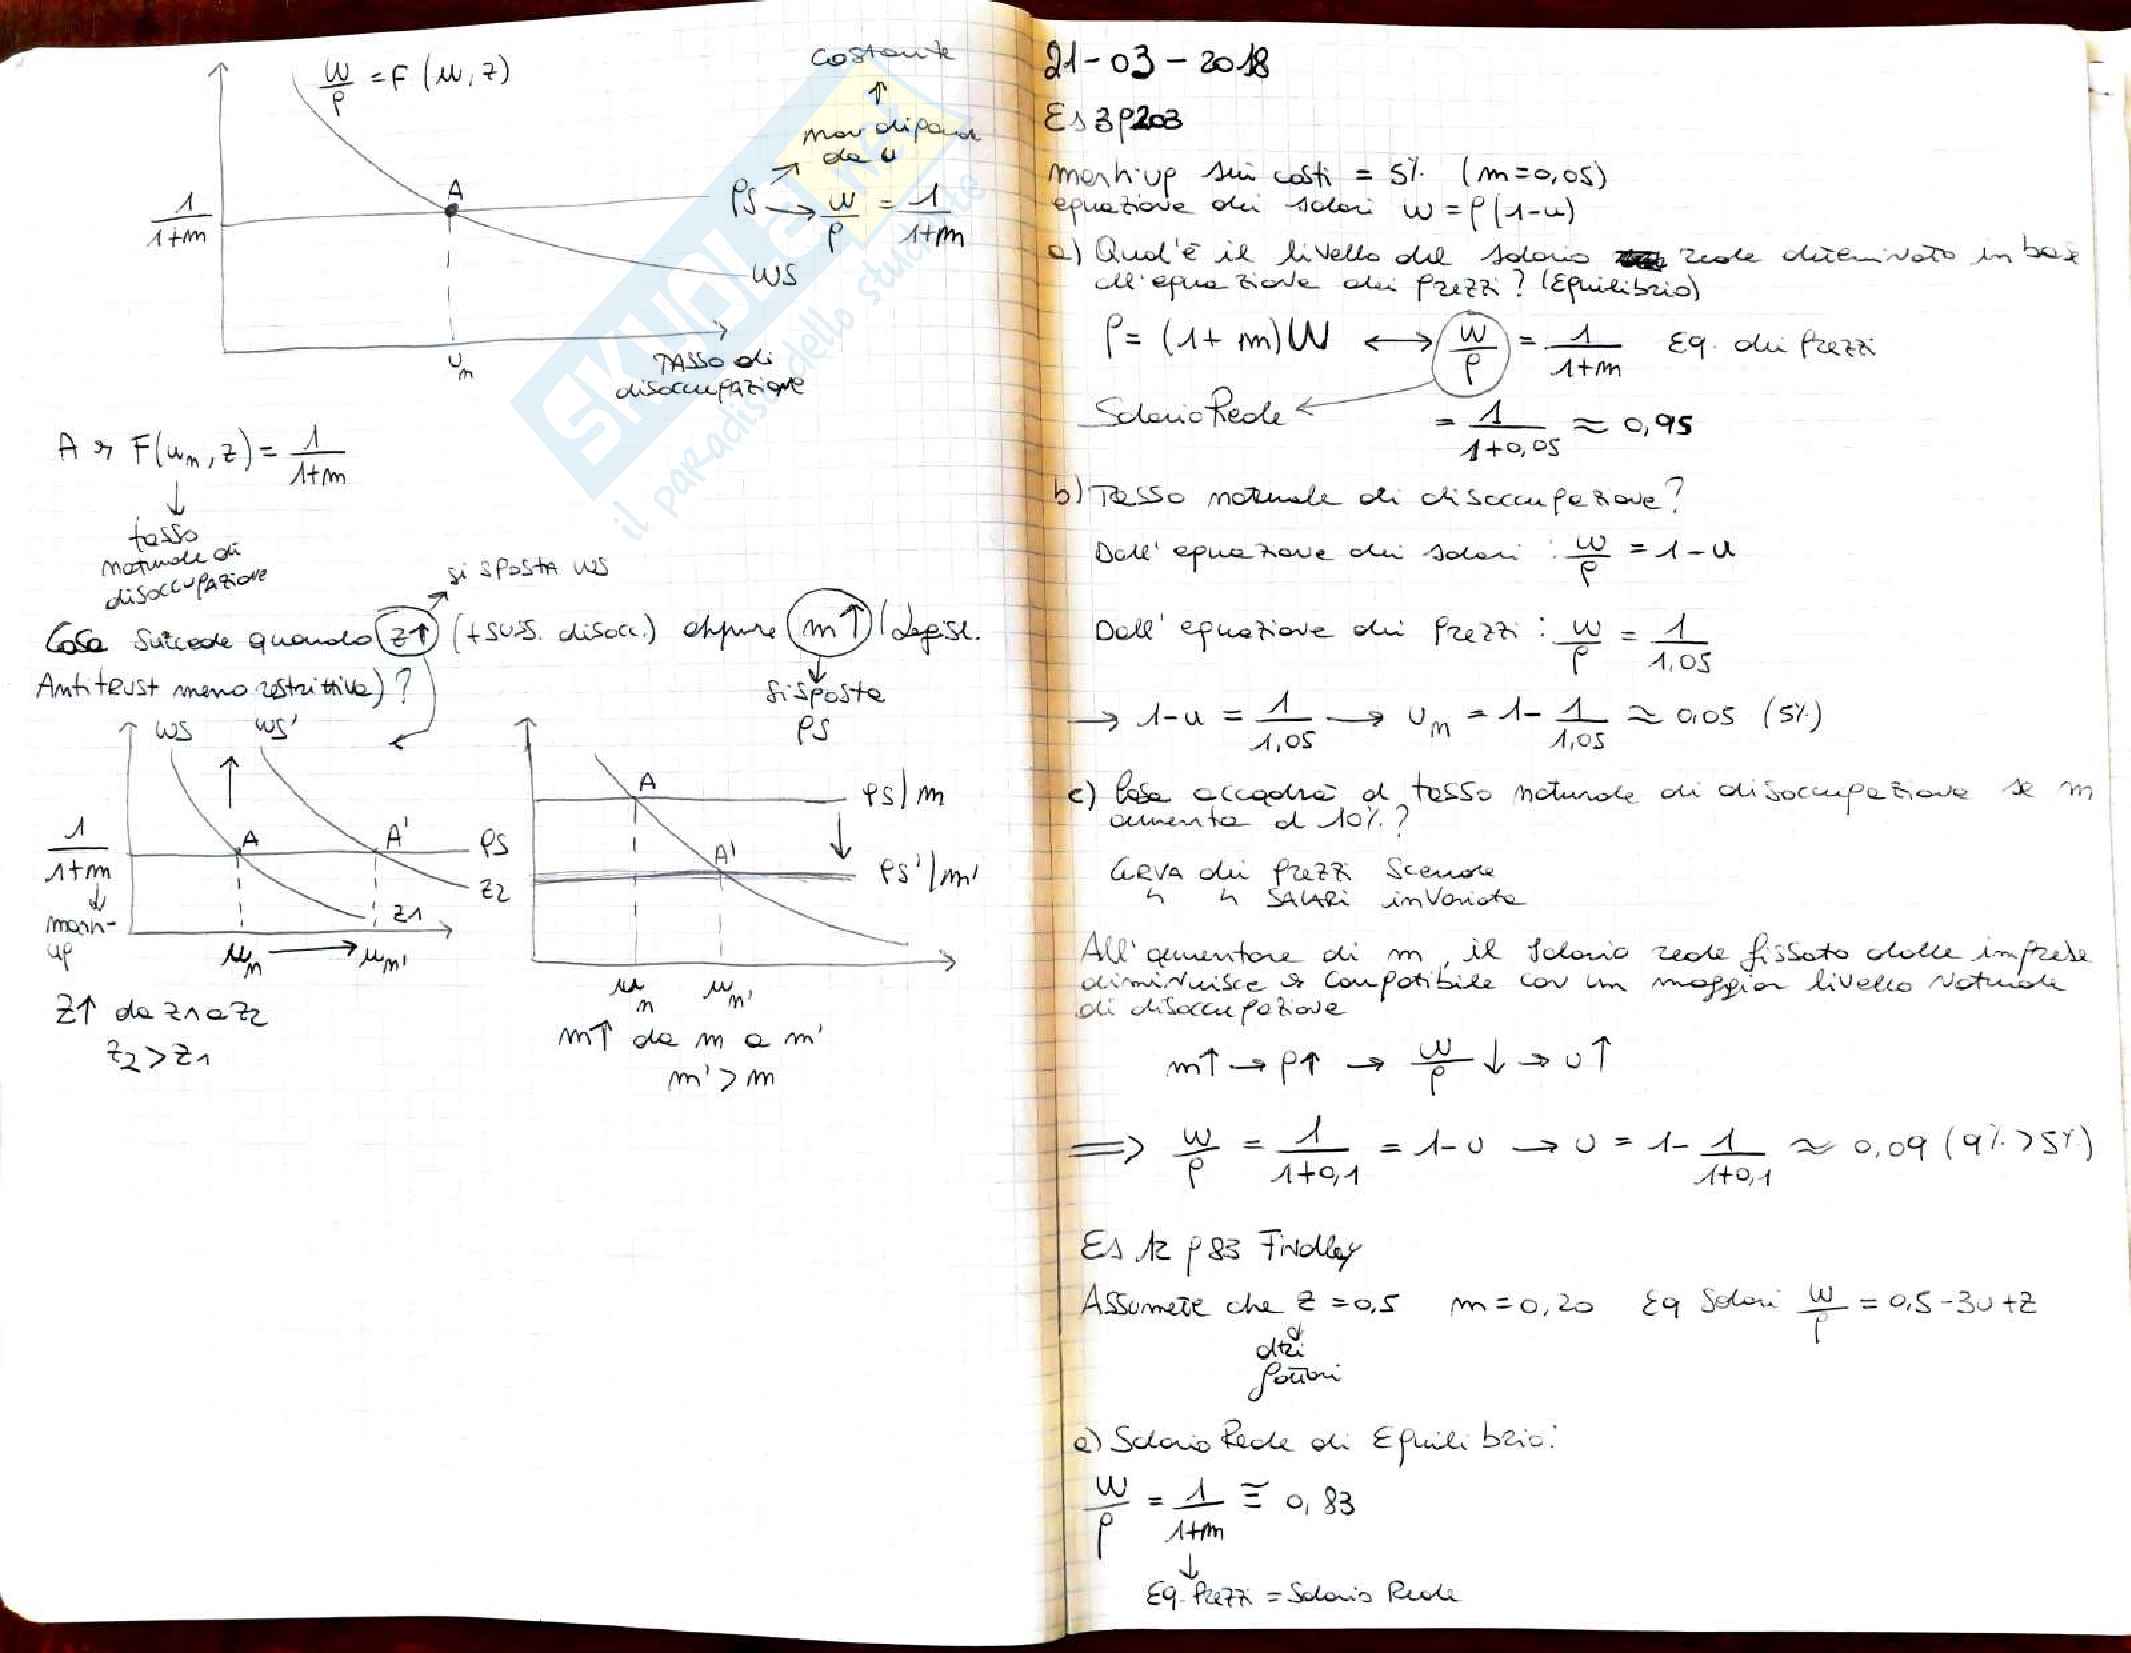 W/P = F(u, z)
costante
↑
non dipende
da u
PS → W/P = 1/(1+m)
1/(1+m)
A
WS
un
TASSO di
disoccupazione
A → F(un, z) = 1/(1+m)
↓
tasso
naturale di
disoccupazione
si SPOSTA WS
Cosa succede quando z↑ (+ suss. disocc.) oppure m↑ (Legisl.
Antitrust meno restrittiva)?
si sposta
PS
WS WS'
A A' PS
1/(1+m)
↓
mark-
up
z2
z1
un → un'
z↑ da z1 a z2
z2 > z1
A
PS/m
A'
PS'/m'
un un'
m↑ da m a m'
m' > m
SKUOLA.net
il paradiso dello studente
21-03-2018
Es 3 p203
mark-up sui costi = 5% (m=0,05)
equazione dei salari W = P(1-u)
a) Qual'è il livello del salario reale determinato in base
all'equazione dei prezzi? (Equilibrio)
P = (1+m)W ↔ W/P = 1/(1+m) Eq. dei prezzi
Salario Reale ← = 1/(1+0,05) ≈ 0,95
b) Tasso naturale di disoccupazione?
Dall'equazione dei salari: W/P = 1-u
Dall'equazione dei Prezzi: W/P = 1/1,05
→ 1-u = 1/1,05 → un = 1 - 1/1,05 ≈ 0,05 (5%)
c) Cosa accadrà al tasso naturale di disoccupazione se m
aumenta al 10%?
CURVA dei prezzi Scende
↳ ↳ SALARI invariata
All'aumentare di m, il salario reale fissato dalle imprese
diminuisce è compatibile con un maggior livello naturale
di disoccupazione
m↑ → P↑ → W/P ↓ → u↑
⟹ W/P = 1/(1+0,1) = 1-u → u = 1 - 1/(1+0,1) ≈ 0,09 (9% > 5%)
Es 12 p 83 Findley
Assumete che z = 0,5 m = 0,20 Eq Salari W/P = 0,5 - 3u + z
↓
altri
fattori
a) Salario Reale di Equilibrio:
W/P = 1/(1+m) ≅ 0,83
↓
Eq. Prezzi = Salario Reale